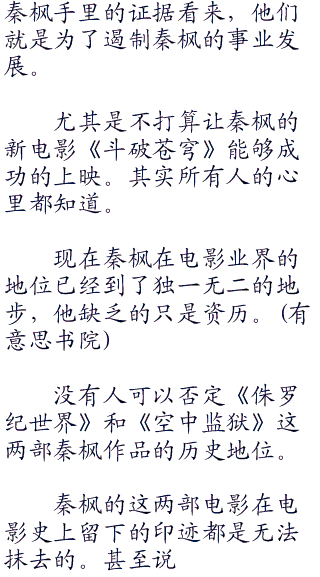 秦枫手里的证据看来，他们
就是为了遏制秦枫的事业发
展。
尤其是不打算让秦枫的
新电影《斗破苍穹》能够成
功的上映。其实所有人的心
里都知道。
现在秦枫在电影业界的
地位已经到了独一无二的地
步，他缺乏的只是资历。(有
意思书院)
没有人可以否定《侏罗
纪世界》和《空中监狱》这
两部秦枫作品的历史地位。
秦枫的这两部电影在电
影史上留下的印迹都是无法
抹去的。甚至说